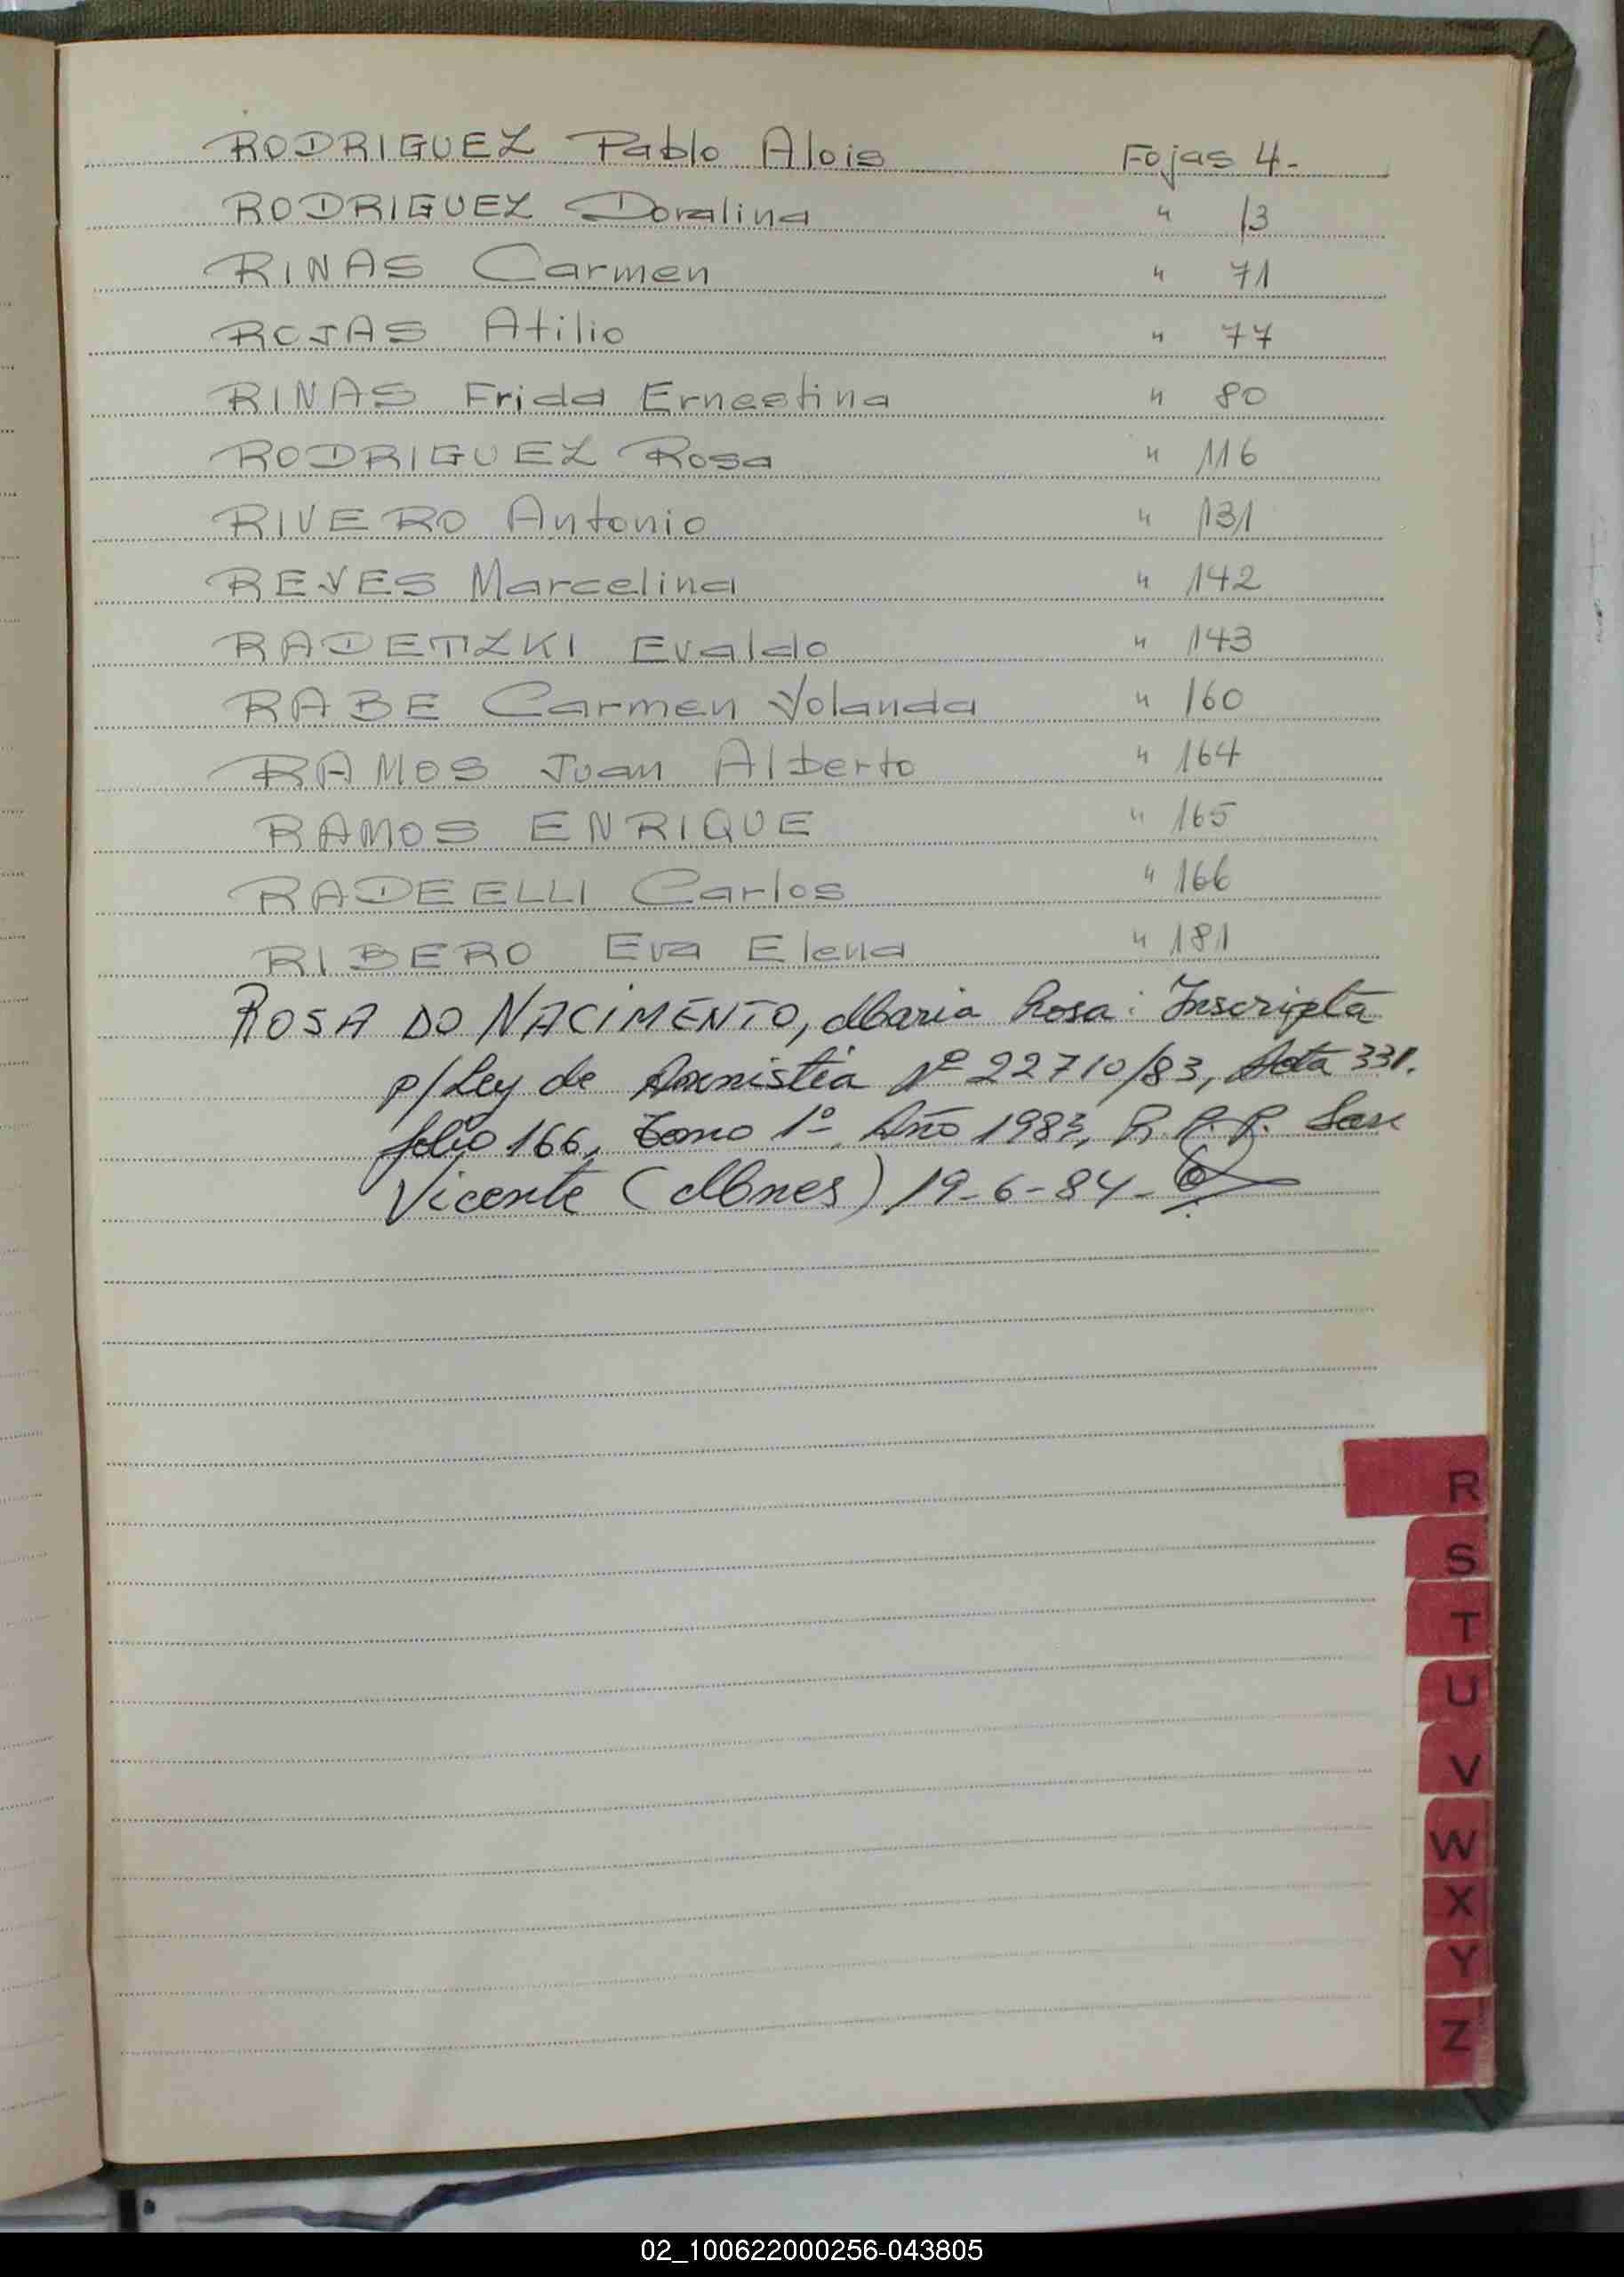 RODRIGUEZ Pablo Alois Fojas 4.-
RODRIGUEZ Doralina " 13
RINAS Carmen " 71
ROJAS Atilio " 77
RINAS Frida Ernestina " 80
RODRIGUEZ Rosa " 116
RIVERO Antonio " 131
REYES Marcelina " 142
RADETZKI Evaldo " 143
RABE Carmen Yolanda " 160
RAMOS Juan Alberto " 164
RAMOS ENRIQUE " 165
RADEELLI Carlos " 166
RIBERO Eva Elena " 181
ROSA DO NACIMENTO, Maria Rosa: Inscripta
p/Ley de Amnistia Nº 22710/83, Acta 331.
folio 166, Tomo 1º, Año 1983, R.P.P. San
Vicente (Mnes) 19-6-84-
R
S
T
U
V
W
X
Y
Z
02_100622000256-043805